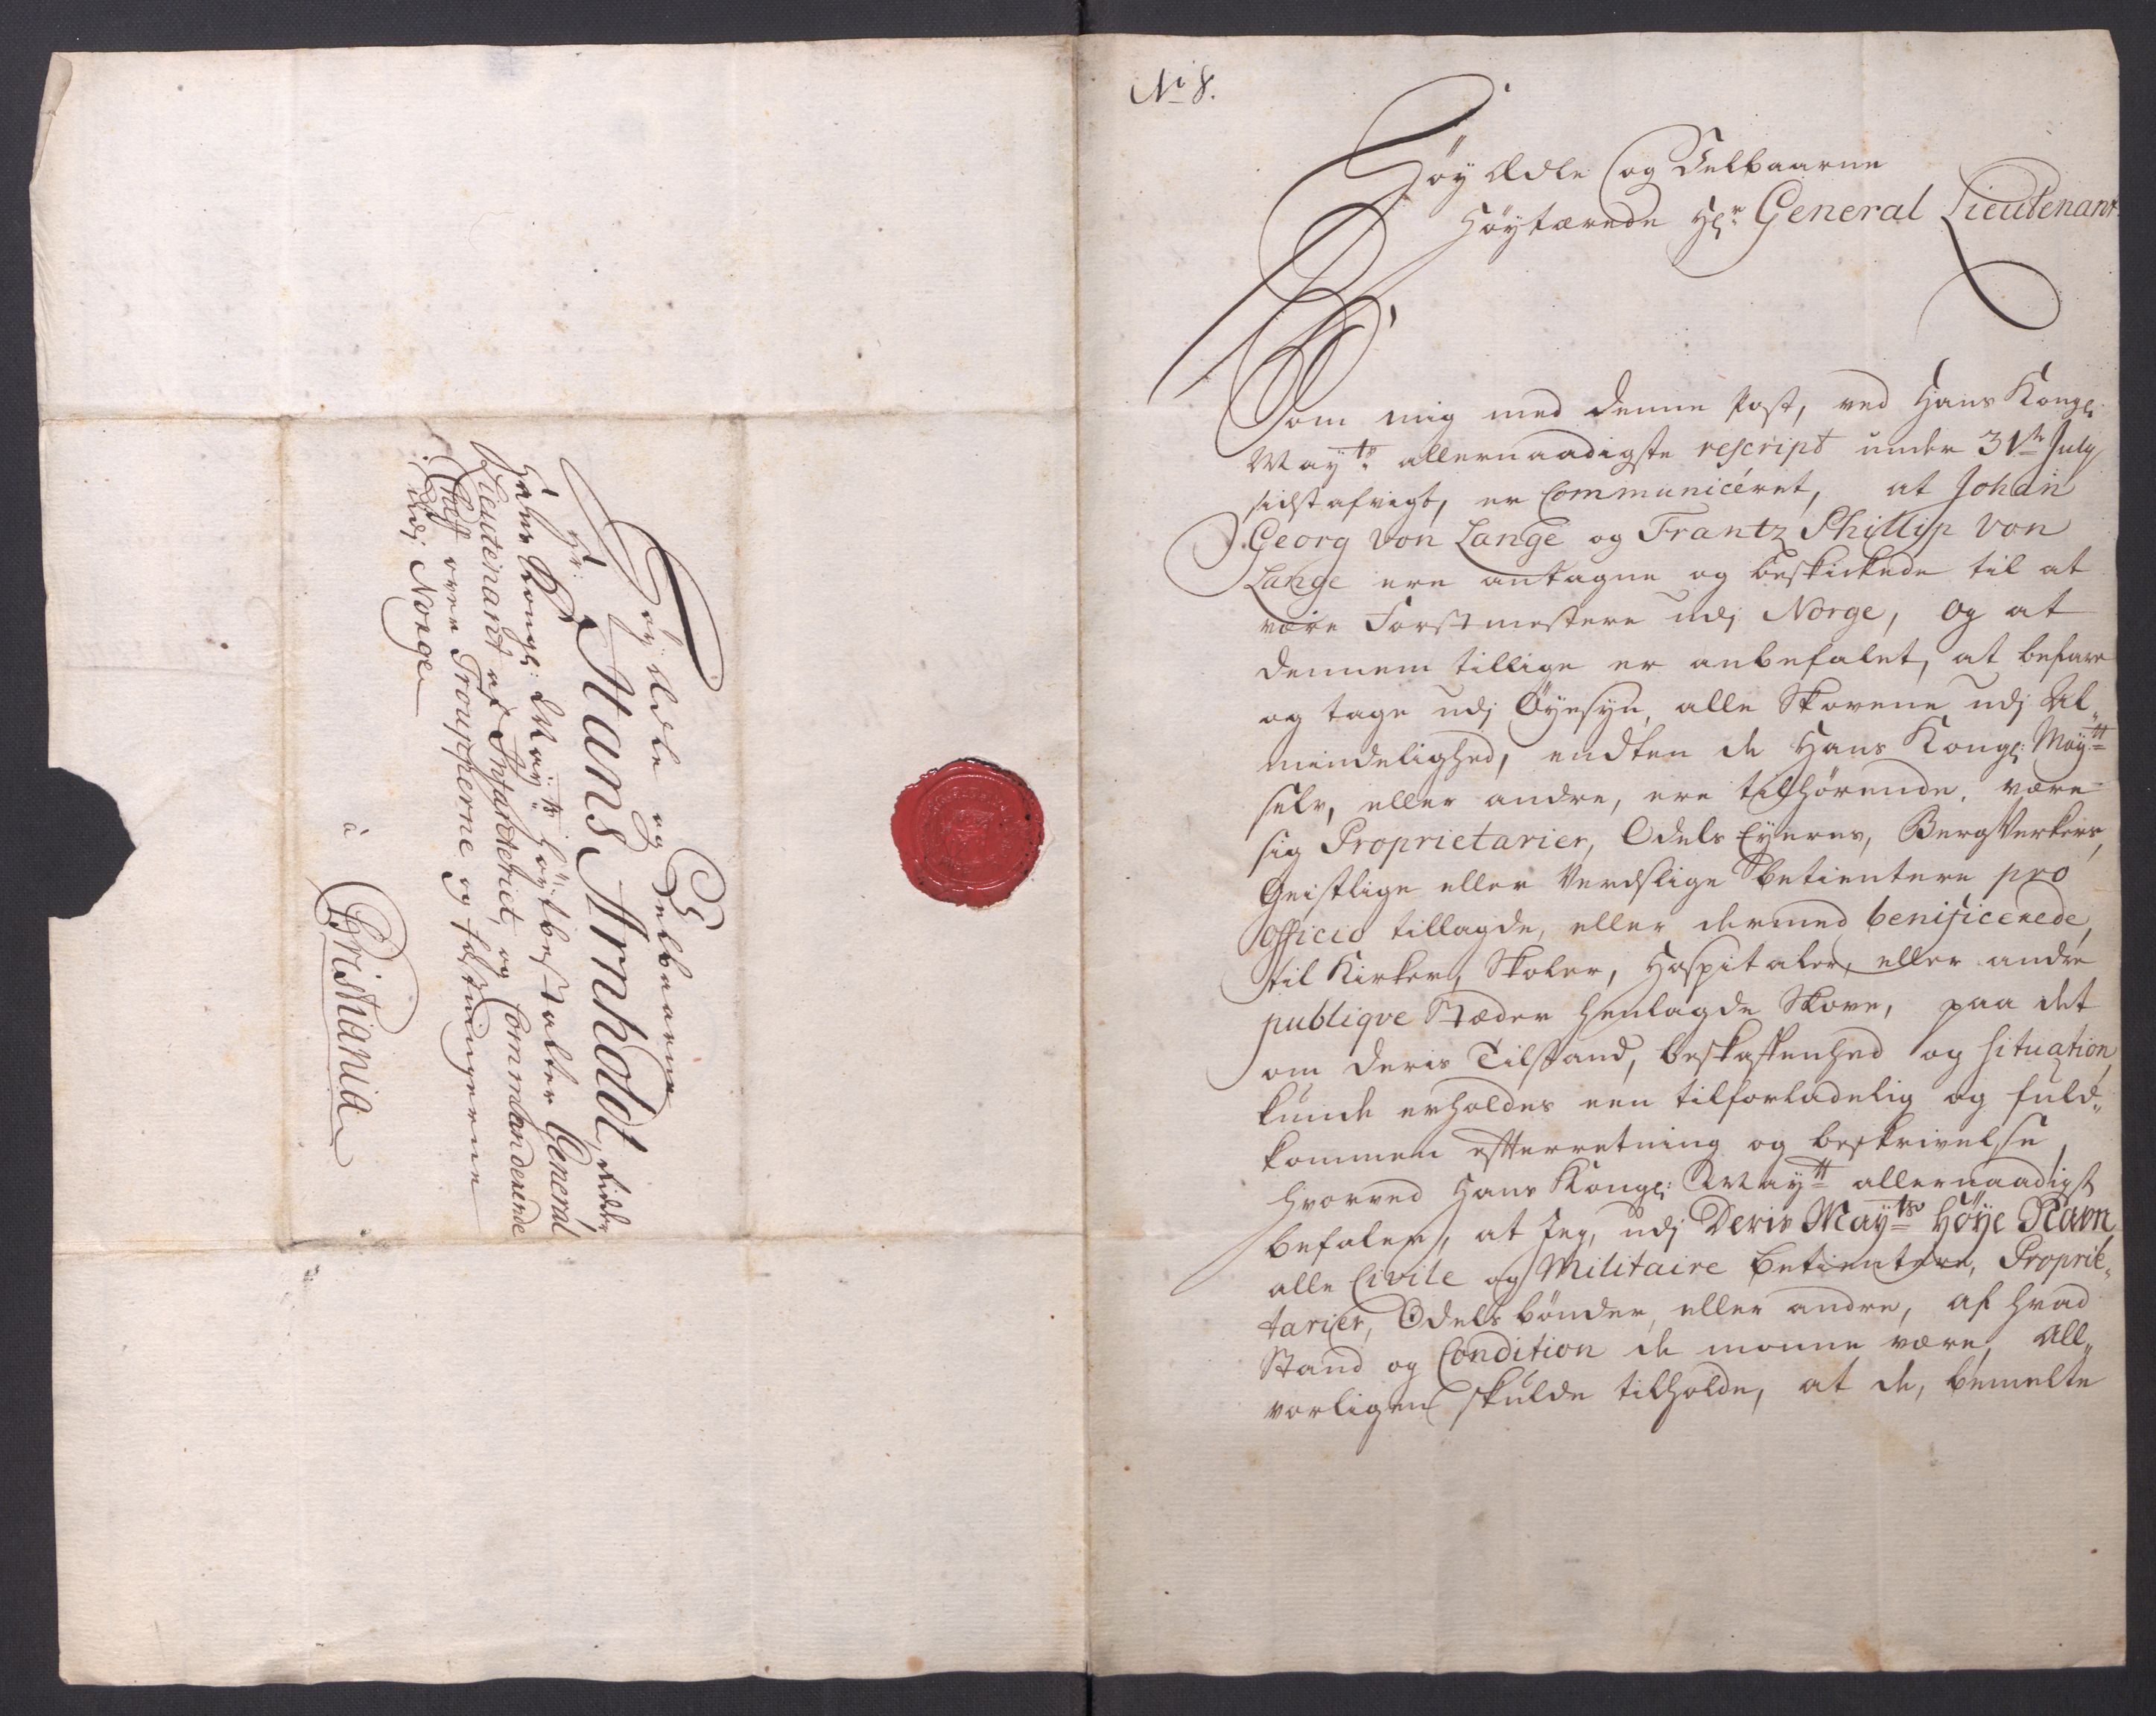 Høy Edle og Velbaarne
Hr: Hans Arnholdt, Ridder
Hans Kongl: Mayts høyt bestalter General
Lieutenant af Infanteriet, og Commanderende
Chef over Troupperne og Fæstningerne
udj Norge
à
Christiania
No 8.
Høy Edle og Velbaarne
Høytærede Hr General Lieutenant
Som mig med denne Post, ved Hans Kongl:
Mayts allernaadigste rescript under 31te July
sidstafvigt, er Communiceret, at Johan
Georg von Lange og Frantz Phillip von
Lange ere antagne og beskickede til at
være Forstmestere udj Norge, og at
dennem tillige er anbefalet, at befare
og tage udj Øyesyn, alle Skovene udj Al„
mindelighed, endten de Hans Kongl: Maytt
selv, eller andre, ere tilhørende, være
sig Proprietarier, Odels Eyeres, BergVerkers,
Geistlige eller Verdslige betientere pro
officio tillagde, eller dermed beneficerede,
til Kirker, Skoler, Hospitaler, eller andre
publiqve Stæder henlagde Skove, paa det
om deris Tilstand, beskaffenhed og situation
kunde erholdes een tilforladelig og fuld„
kommen efterretning og beskrivelse,
hvorved Hans Kongl: Maytt allernaadigst
befaler, at Jeg, udj Deris Mayts Høye Navn,
alle Civile og Militaire betientere, Proprie„
tarier, Odels bønder, eller andre, af hvad
Stand og Condition de monne være, All„
vorligen skulde tilholde, at de, bemelte